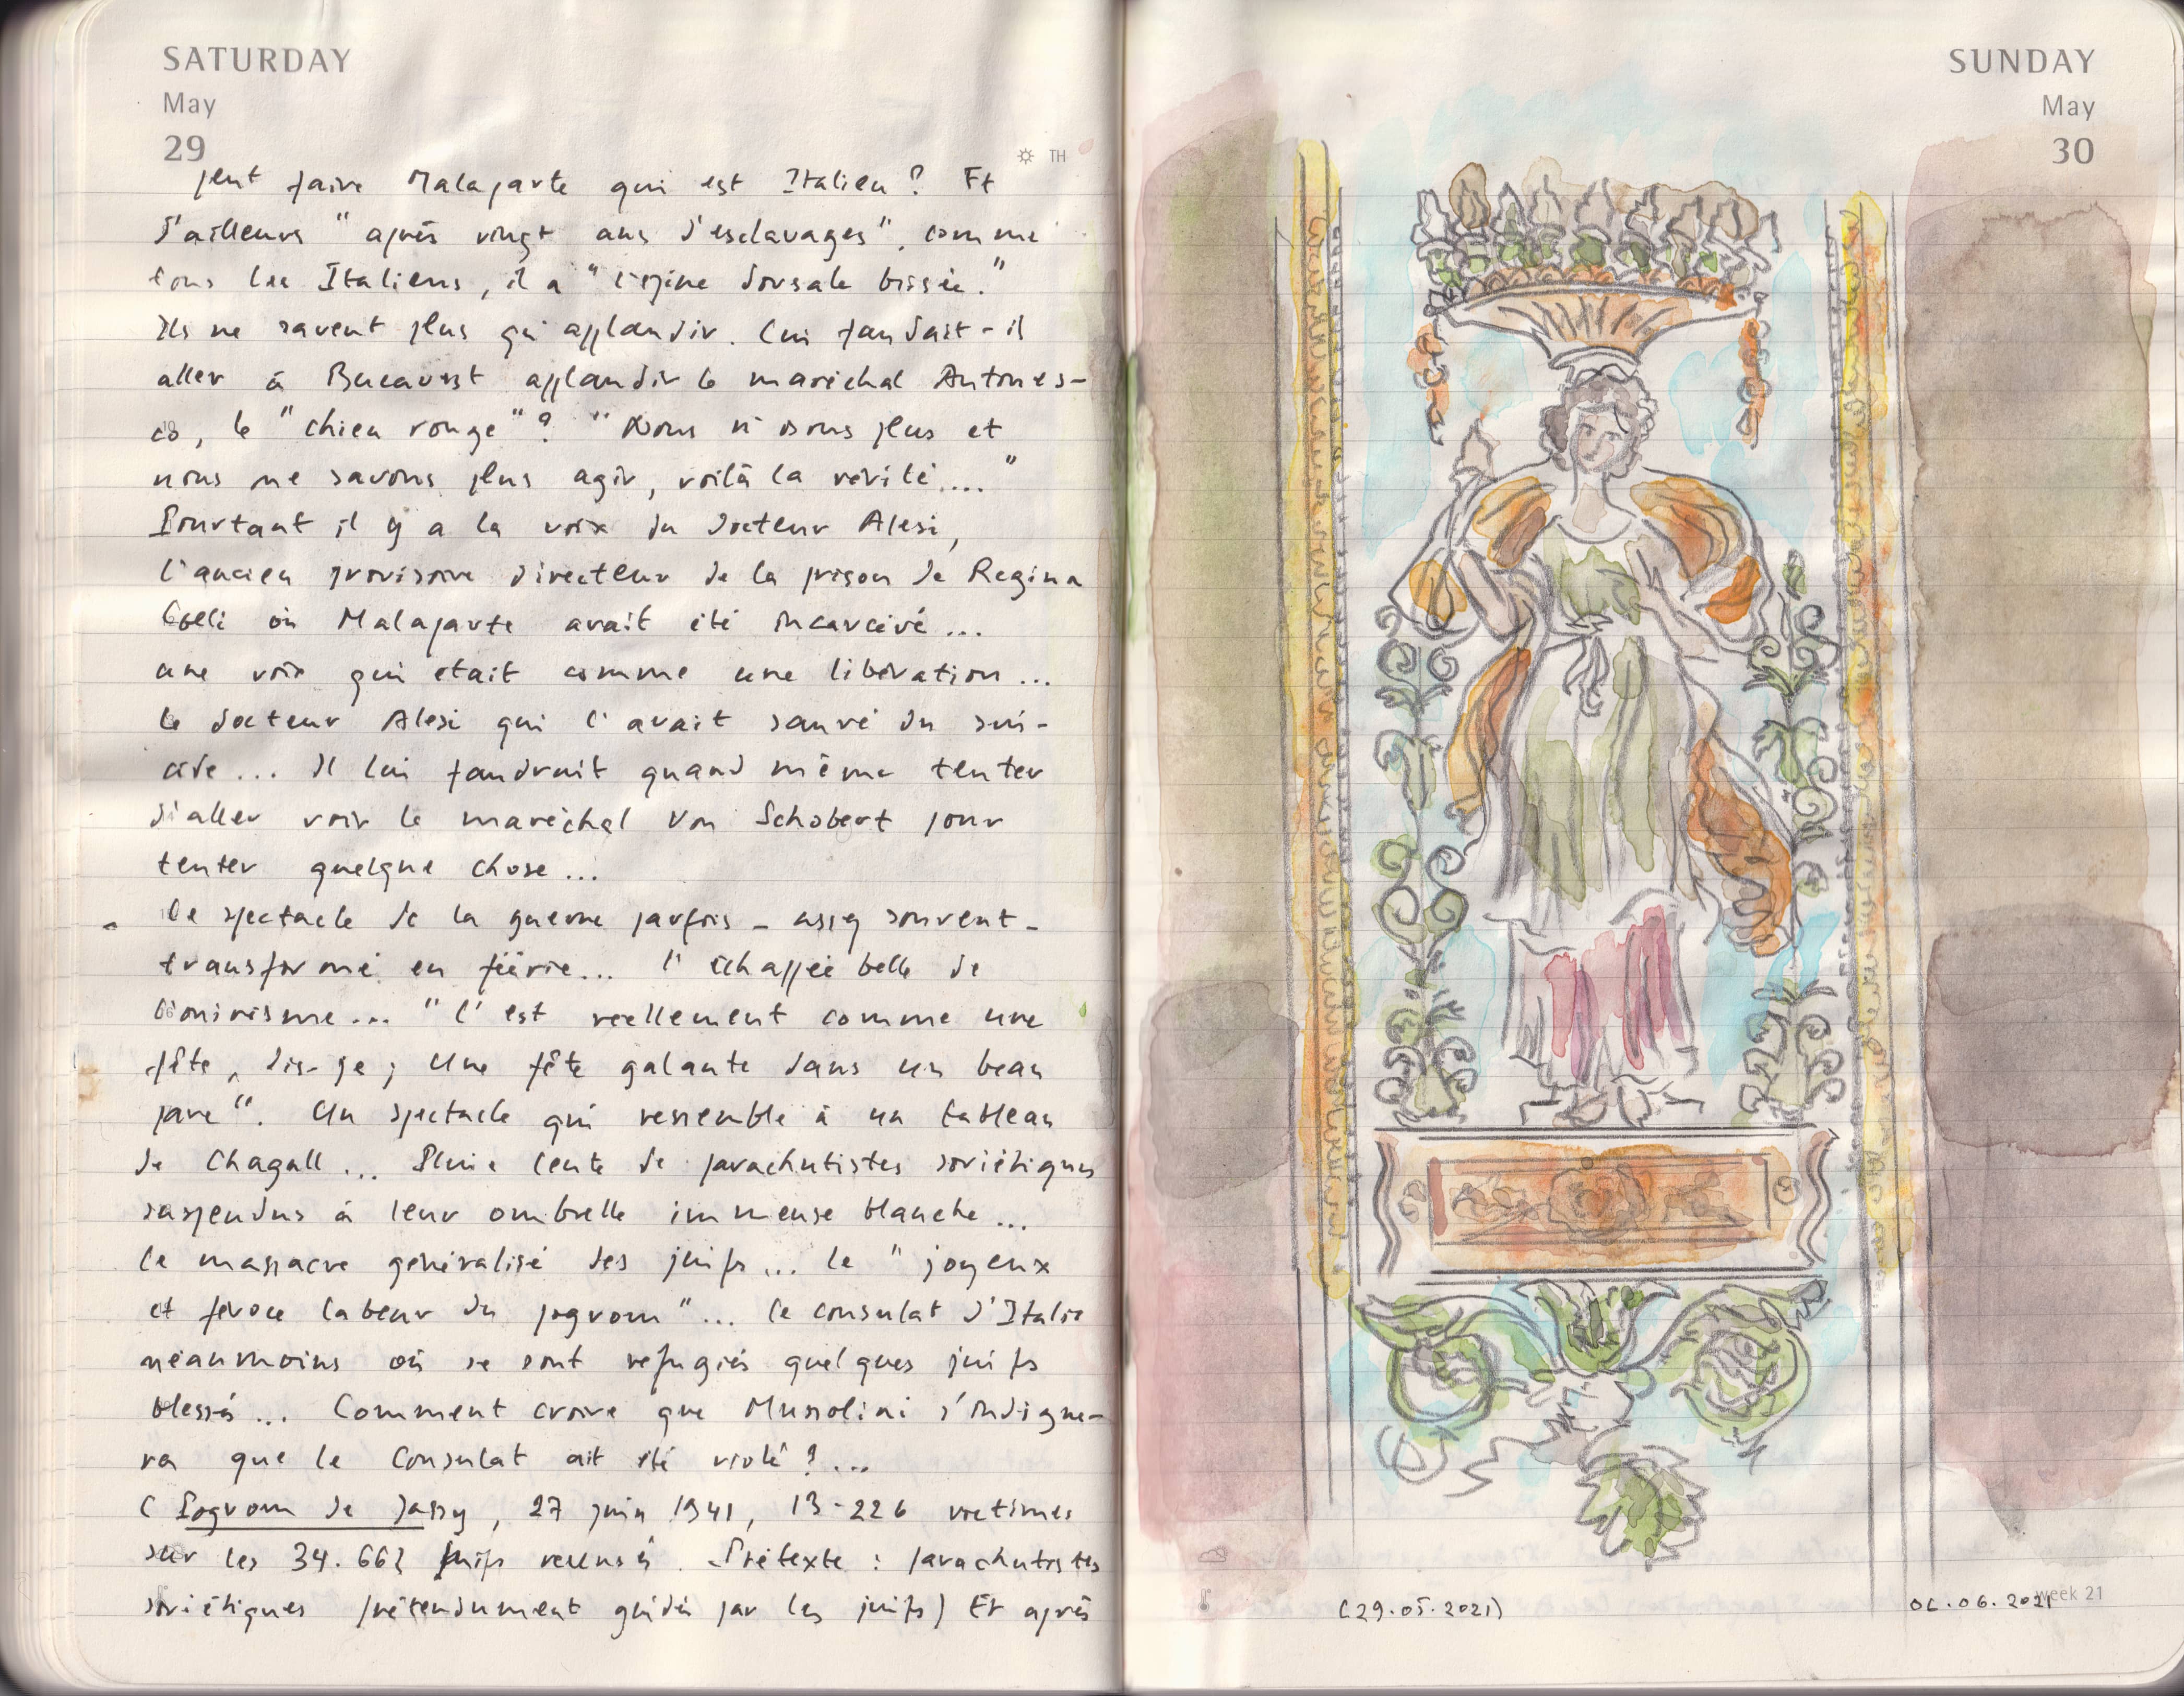 SATURDAY
May
29
TH
peut faire Malaparte qui est Italien ? Et
d'ailleurs "après vingt ans d'esclavages", comme
tous les Italiens, il a "l'épine dorsale brisée."
Ils ne savent plus qu'applaudir. Lui faudait-il
aller à Bucarest applaudir le maréchal Antones-
co, le "chien rouge" ? "Nous n'osons plus et
nous ne savons plus agir, voilà la vérité...."
Pourtant il y a la voix du docteur Alesi,
l'ancien provisoire directeur de la prison de Regina
Coeli où Malaparte avait été incarcéré...
une voix qui était comme une libération...
le docteur Alesi qui l'avait sauvé du sui-
cide... Il lui faudrait quand même tenter
d'aller voir le maréchal Von Schobert pour
tenter quelque chose...
Le spectacle de la guerre parfois - assez souvent -
transformé en féérie... l'échappée belle de
l'onirisme... "C'est réellement comme une
fête, dis-je ; Une fête galante dans un beau
parc". Un spectacle qui ressemble à un tableau
de Chagall... Pluie lente de parachutistes soviétiques
suspendus à leur ombrelle immense blanche...
Le massacre généralisé des juifs... le "joyeux
et féroce labeur du pogrom"... le consulat d'Italie
néanmoins où se sont réfugiés quelques juifs
blessés... Comment croire que Mussolini s'indigne-
ra que le Consulat ait été violé ?...
( Pogrom de Jassy, 27 juin 1941, 13-226 victimes
sur les 34.662 juifs recensés. Prétexte : parachutistes
soviétiques prétendument guidés par les juifs) Et après
SUNDAY
May
30
(29.05.2021)
06.06.2021
week 21